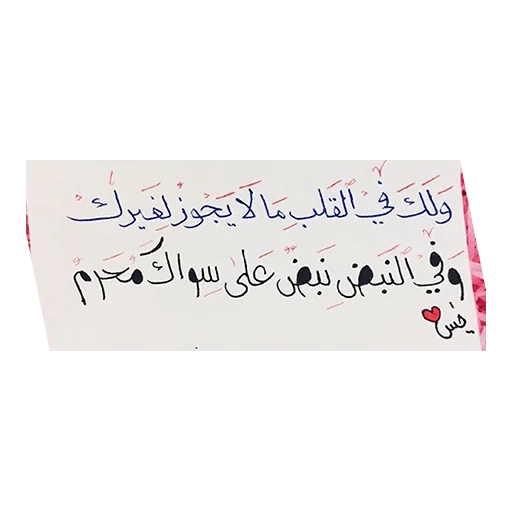 وَلَكَ فِي القَلبِ مَا لَا يَجُوزُ لِغَيرِكَ
وَفِي النَبضِ نَبضٌ عَلى سِواكَ مُحَرم